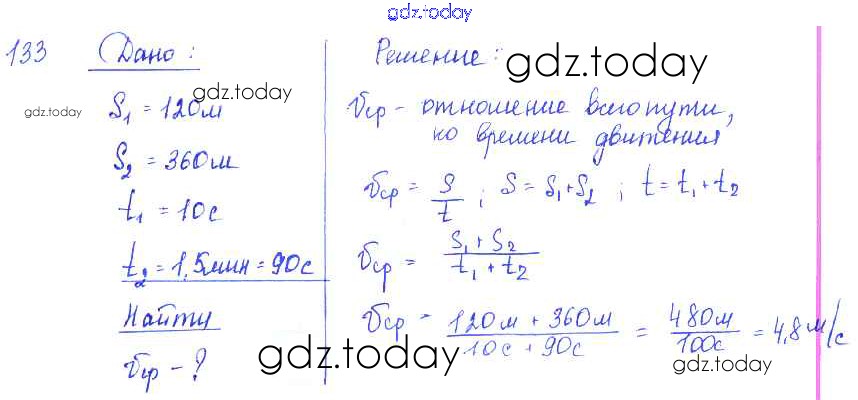 gdz.today
133 Дано:
gdz.today
gdz.today
S₁ = 120м
S₂ = 360м
t₁ = 10с
t₂ = 1,5мин = 90с
Найти
vср - ?
Решение:
gdz.today
vср - отношение всего пути,
ко времени движения
vср = S/t ; S = S₁+S₂ ; t = t₁+t₂
vср = (S₁ + S₂)/(t₁ + t₂)
gdz.today
vср = (120м + 360м)/(10с + 90с) = 480м/100с = 4,8 м/с
gdz.today
gdz.today